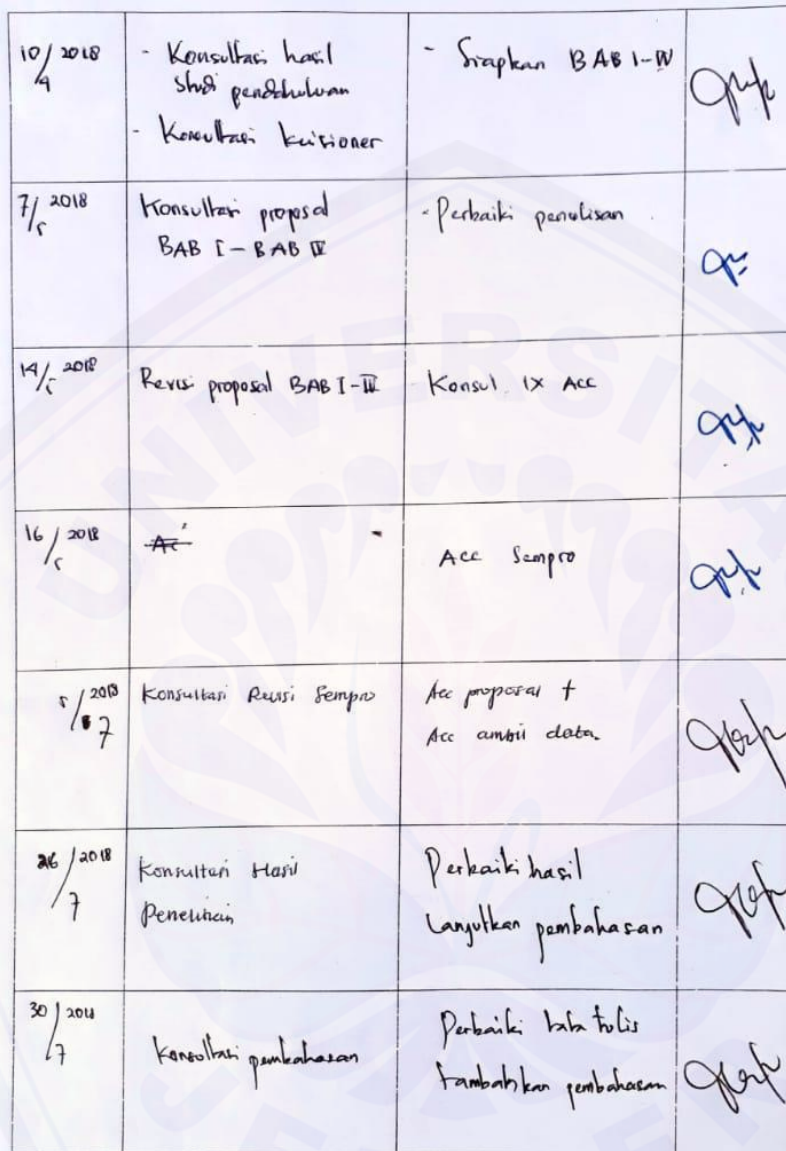 10/4 2018
- Konsultasi hasil
studi pendahuluan
- Konsultasi kuisioner
- Siapkan BAB I-IV
7/5 2018
Konsultasi proposal
BAB I - BAB IV
- Perbaiki penulisan
14/5 2018
Revisi proposal BAB I-IV
Konsul 1X Acc
16/5 2018
Ac
Acc Sempro
5/7 2018
Konsultasi Revisi Sempro
Acc proposal +
Acc ambil data.
26/7 2018
Konsultasi Hasil
Penelitian
Perbaiki hasil
Lanjutkan pembahasan
30/7 2018
Konsultasi pembahasan
Perbaiki tata tulis
tambahkan pembahasan
UNIVERSITA
JEMBER